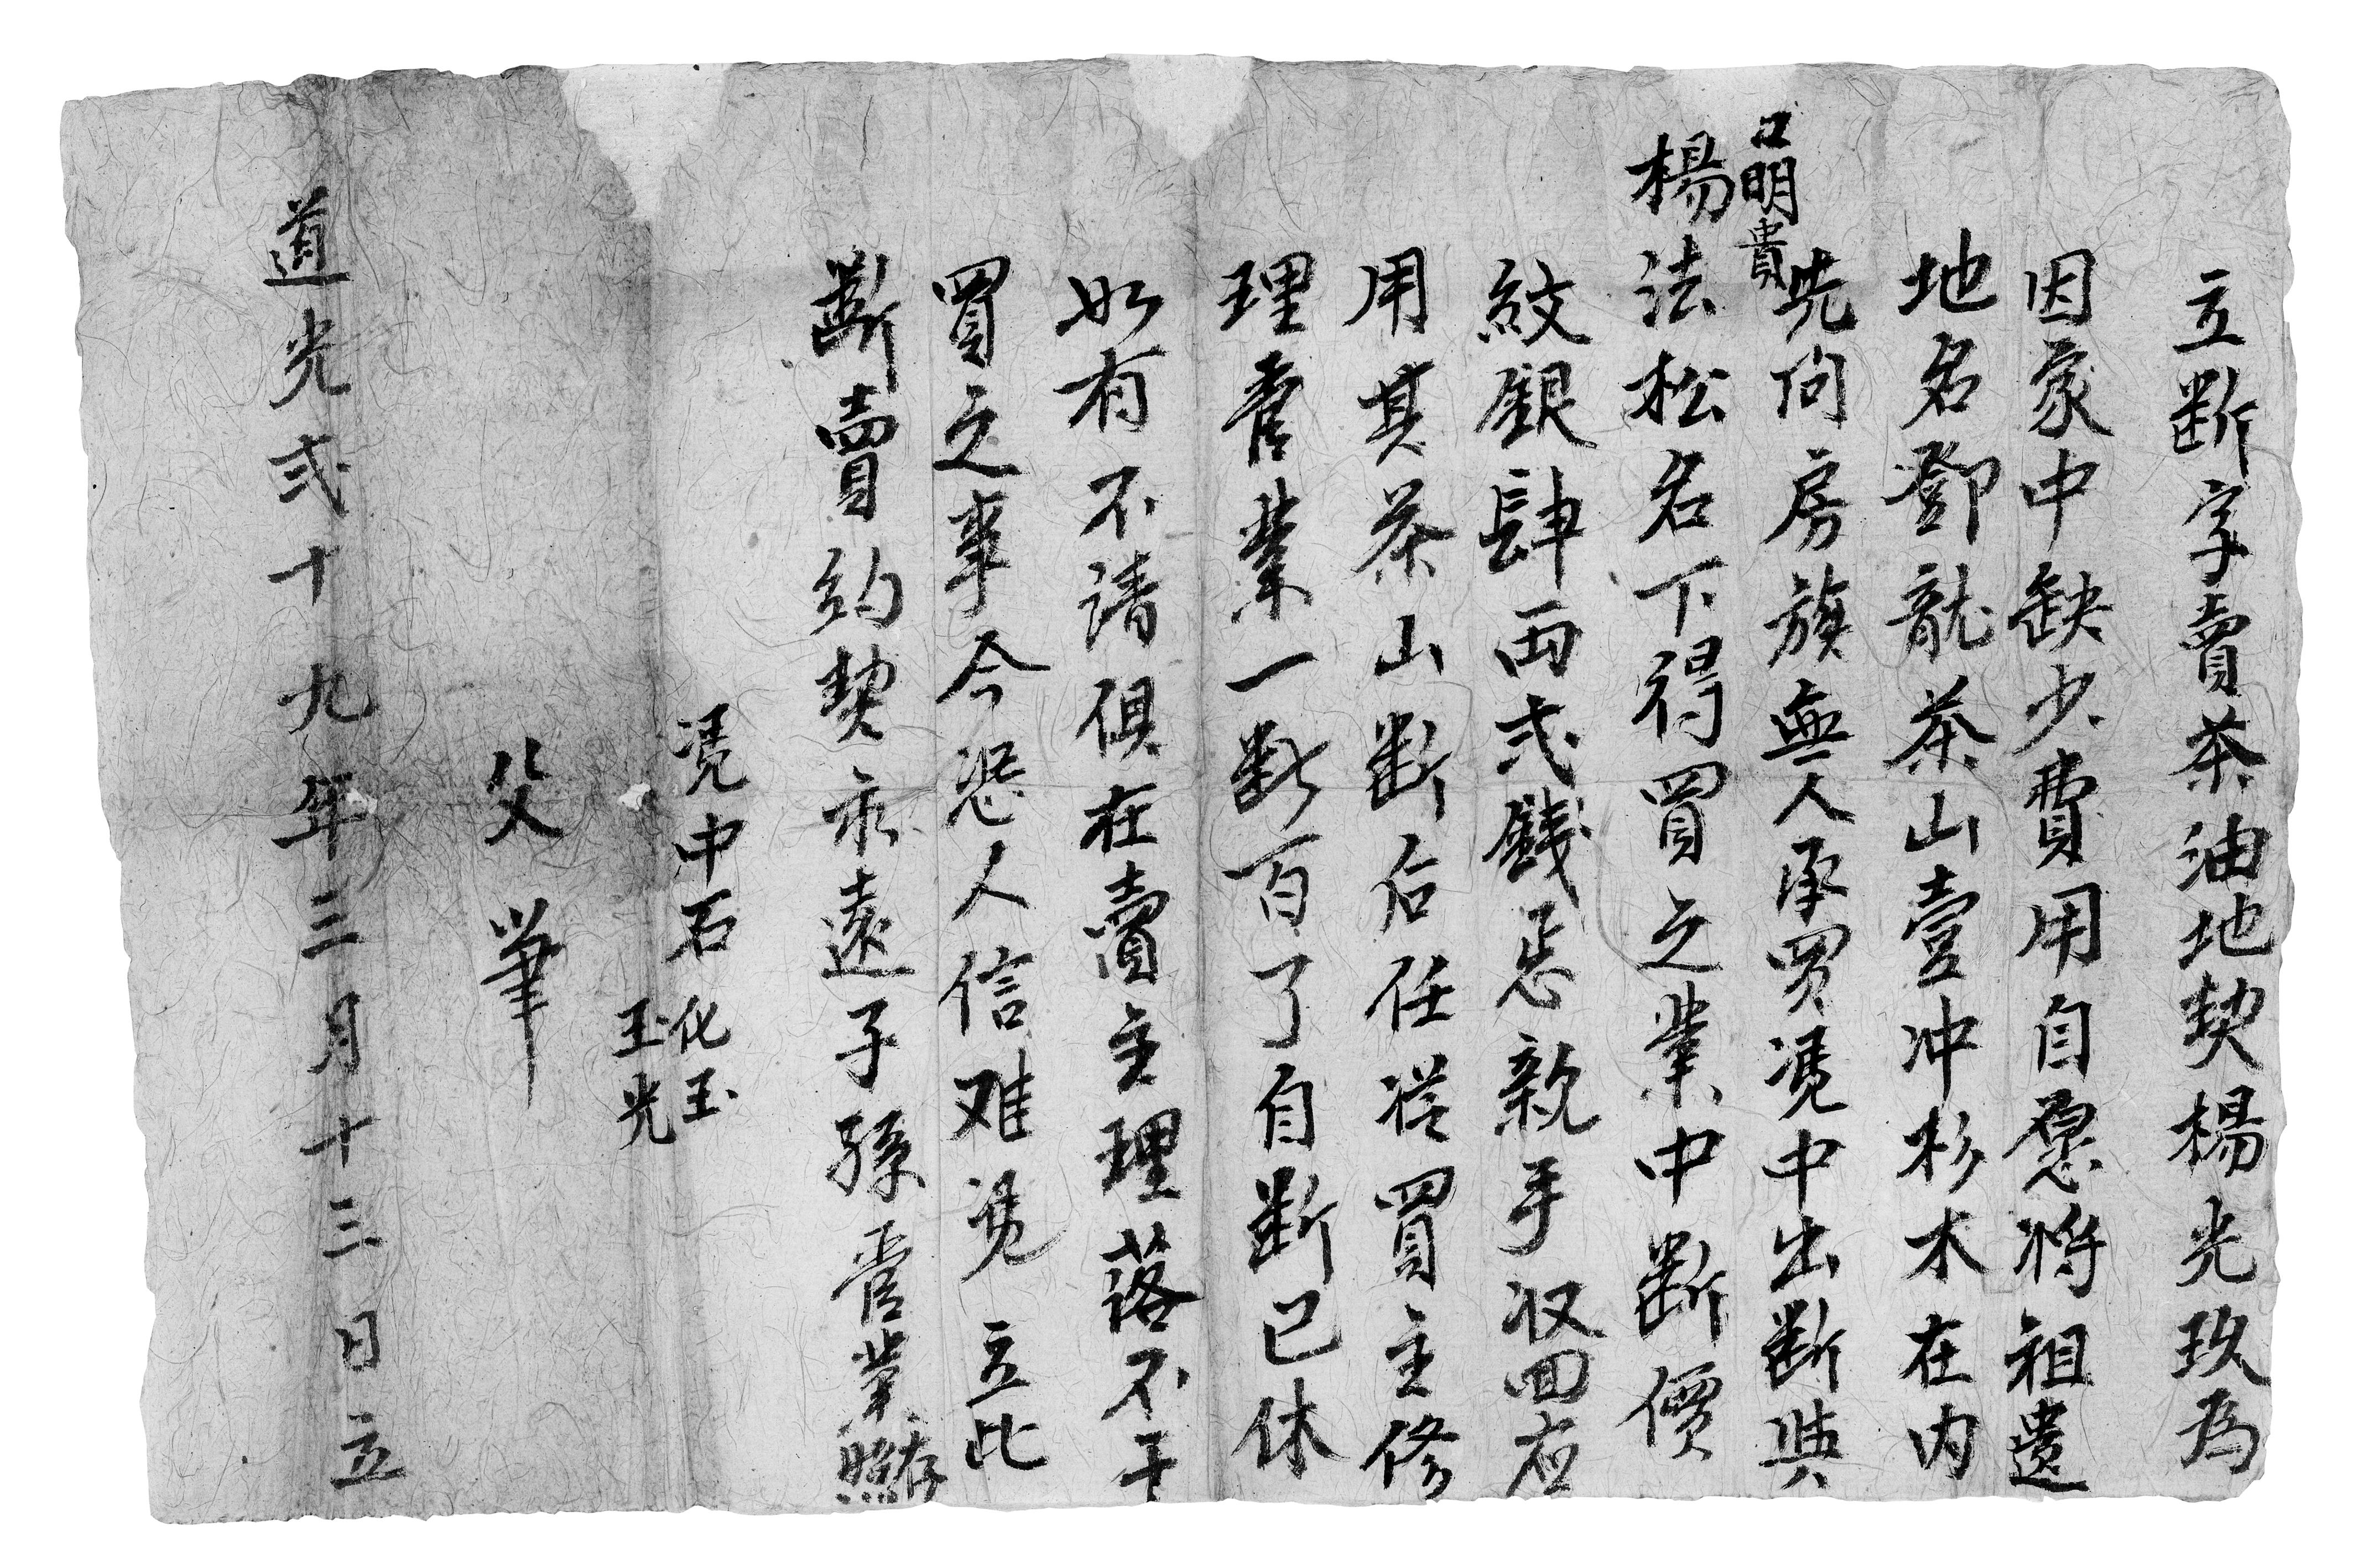 立断字賣茶油地契楊光玖為
因家中缺少費用自愿將祖遺
地名鄧龍茶山壹冲杉木在内
先问房族無人承買凴中出断與
明貴
楊法松名下得買之業中断價
紋銀肆両弍錢㤙親手収回应
用其茶山断后任従買主修
理管業一断百了自断已休
如有不清俱在賣主理落不干
買之事今恐人信难凴立此
斷賣約契永遠子孫管業存照
凴中石化玉
玉光
父筆
道光弍十九年三月十三日立